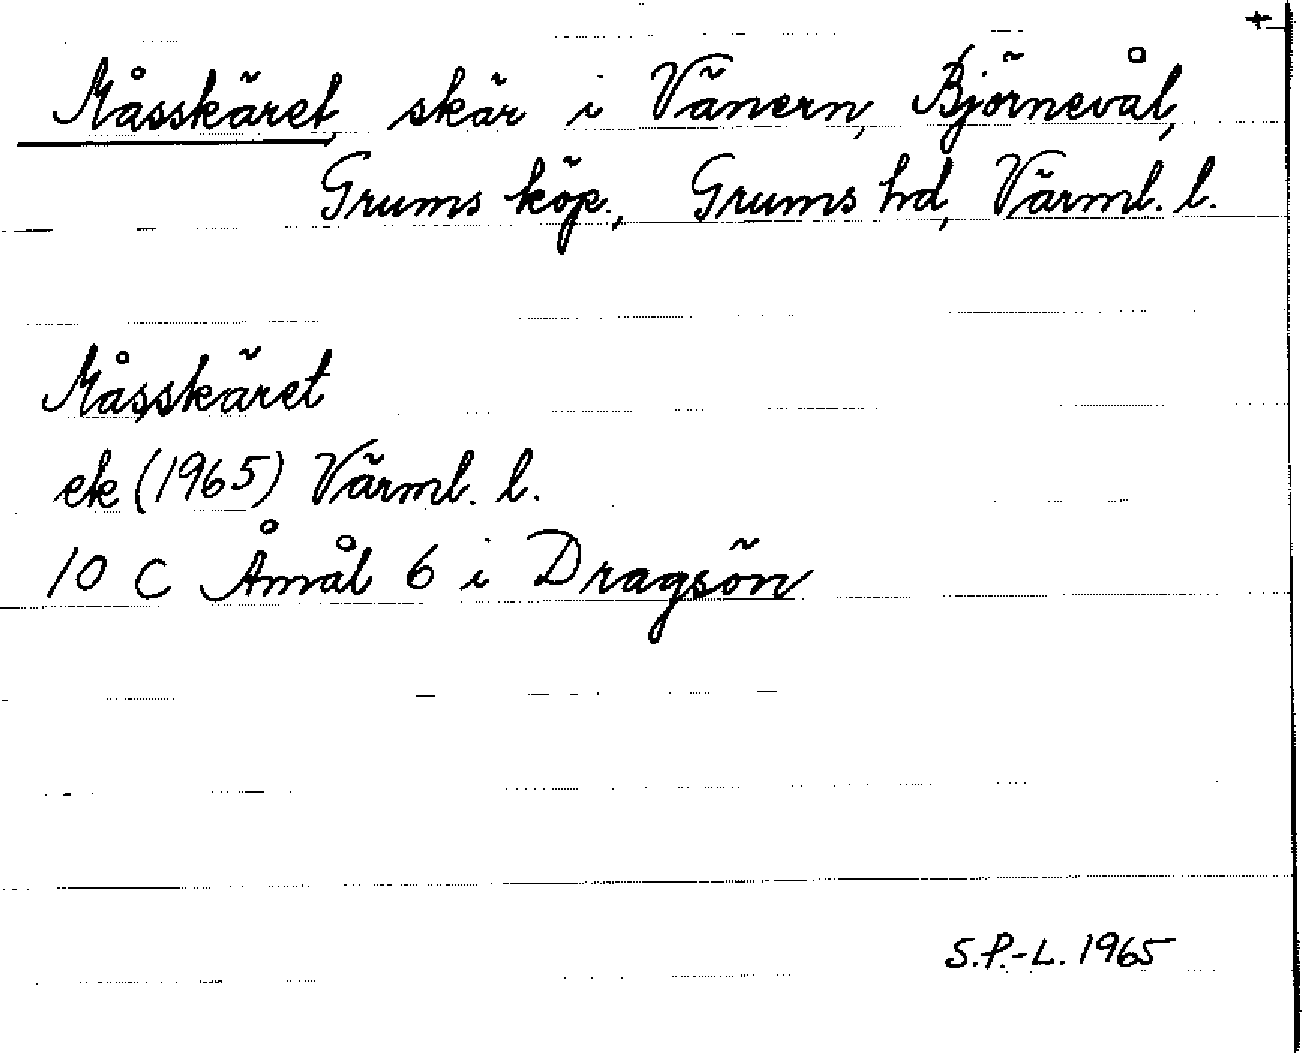 +
Måsskäret, skär i Vänern, Björnevål,
Grums köp., Grums hd, Värml. l.
Måsskäret
ek (1965) Värml. l.
10 C Åmål 6 i Dragsön
S.P.-L. 1965